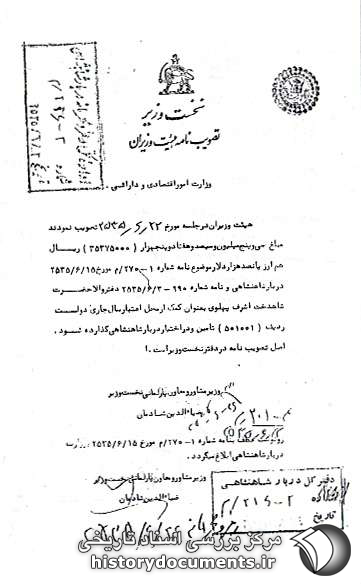 نخست وزیر
تصویب نامه هیئت وزیران
وزارت امور اقتصادی و دارائی
هیئت وزیران در جلسه مورخ ۲۵۳۵/۶/۲۲ تصویب نمودند
مبلغ سی و پنج میلیون و سیصد و هفتاد و پنج هزار ( ۳۵۳۷۵۰۰۰ ) ریال
هم ارز پانصد هزار دلار موضوع نامه شماره ۱–۲۷۰/م مورخ ۲۵۳۵/۶/۱۵
دربار شاهنشاهی و نامه شماره ۶۹۰–۲ دفتر والاحضرت
شاهدخت اشرف پهلوی بعنوان کمک از محل اعتبار سال جاری دولت
ردیف ( ۵۰۱۰۰۱ ) تامین و در اختیار دربار شاهنشاهی گذارده شود .
اصل تصویب نامه در دفتر نخست وزیر است .
وزیر مشاور و معاون پارلمانی نخست وزیر
ضیاءالدین شادمان
نامه شماره ۱–۲۷۰/م مورخ ۲۵۳۵/۶/۱۵
دربار شاهنشاهی ابلاغ میگردد .
وزیر مشاور و معاون پارلمانی نخست وزیر
ضیاءالدین شادمان
دفتر کل دربار شاهنشاهی
شماره
تاریخ
مرکز بررسی اسناد تاریخی
historydocuments.ir